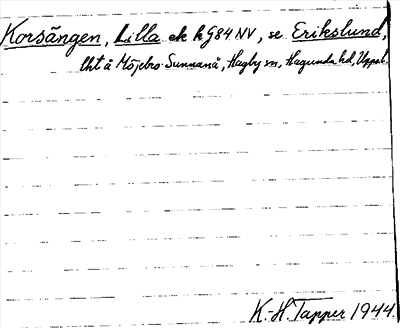 Korsängen, Lilla ek kg 84 NV, se Erikslund,
lht å Höjebro-Sunnanå, Hagby sn, Hagunda hd, Uppsl.
K.-H. Tapper 1944.